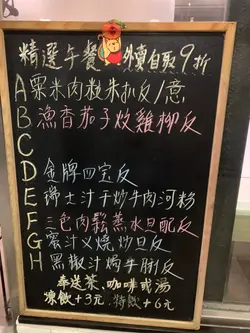 精選午餐 外賣自取9折
A粟米肉粒朱扒反/意
B魚香茄子炆雞柳反
C
D金牌四宝反
E瑞士汁干炒牛肉河粉
F三色肉鬆蒸水旦配反
G蜜汁叉燒炒旦反
H黑椒汁焗牛脷反
奉送茶.咖啡或湯
凍飲+3元 特飲+6元